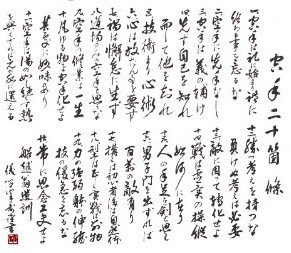 空手二十箇條
一、空手は礼に始り礼に
終る事を忘るな
二、空手に先手なし
三、空手は義の補け
四、先づ自己を知れ
而して他を知れ
五、技術より心術
六、心は放たん事を要す
七、禍は懈怠に生ず
八、道場のみの空手と思ふな
九、空手の修業は一生
十、凡ゆるものを空手化せよ
其処に妙味あり
十一、空手は湯の如し絶えず熱
を与えざれば元の水に還る
十二、勝つ考は持つな
負けぬ考は必要
十三、敵に因って転化せよ
十四、戦は虚実の操縦
如何に在り
十五、人の手足を剣と思へ
十六、男子門を出づれば
百万の敵有り
十七、構は初心者後は自然体
十八、型は正しく実戦は別物
十九、力の強弱体の伸縮
技の緩急を忘るな
二十、常に思念工夫せよ